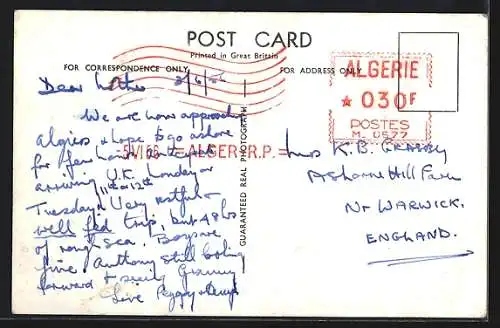 POST CARD
Printed in Great Britain
FOR CORRESPONDENCE ONLY
FOR ADDRESS ONLY
ALGERIE
★ 030F
POSTES
M. 0577
ALGER R.P.
GUARANTEED REAL PHOTOGRAPH
Dear Mother
We are now approaching
Algiers & hope to go ashore
for few hours
arriving U.K. Monday or
Tuesday 11th or 12th Very restful &
well fed trip, but 48 hrs
of rough sea. Boys are
fine. Anthony still looking
forward to seeing Granny
Love Peggy &
Mrs K.B.
Ashorne Hill Farm
Nr WARWICK.
ENGLAND.